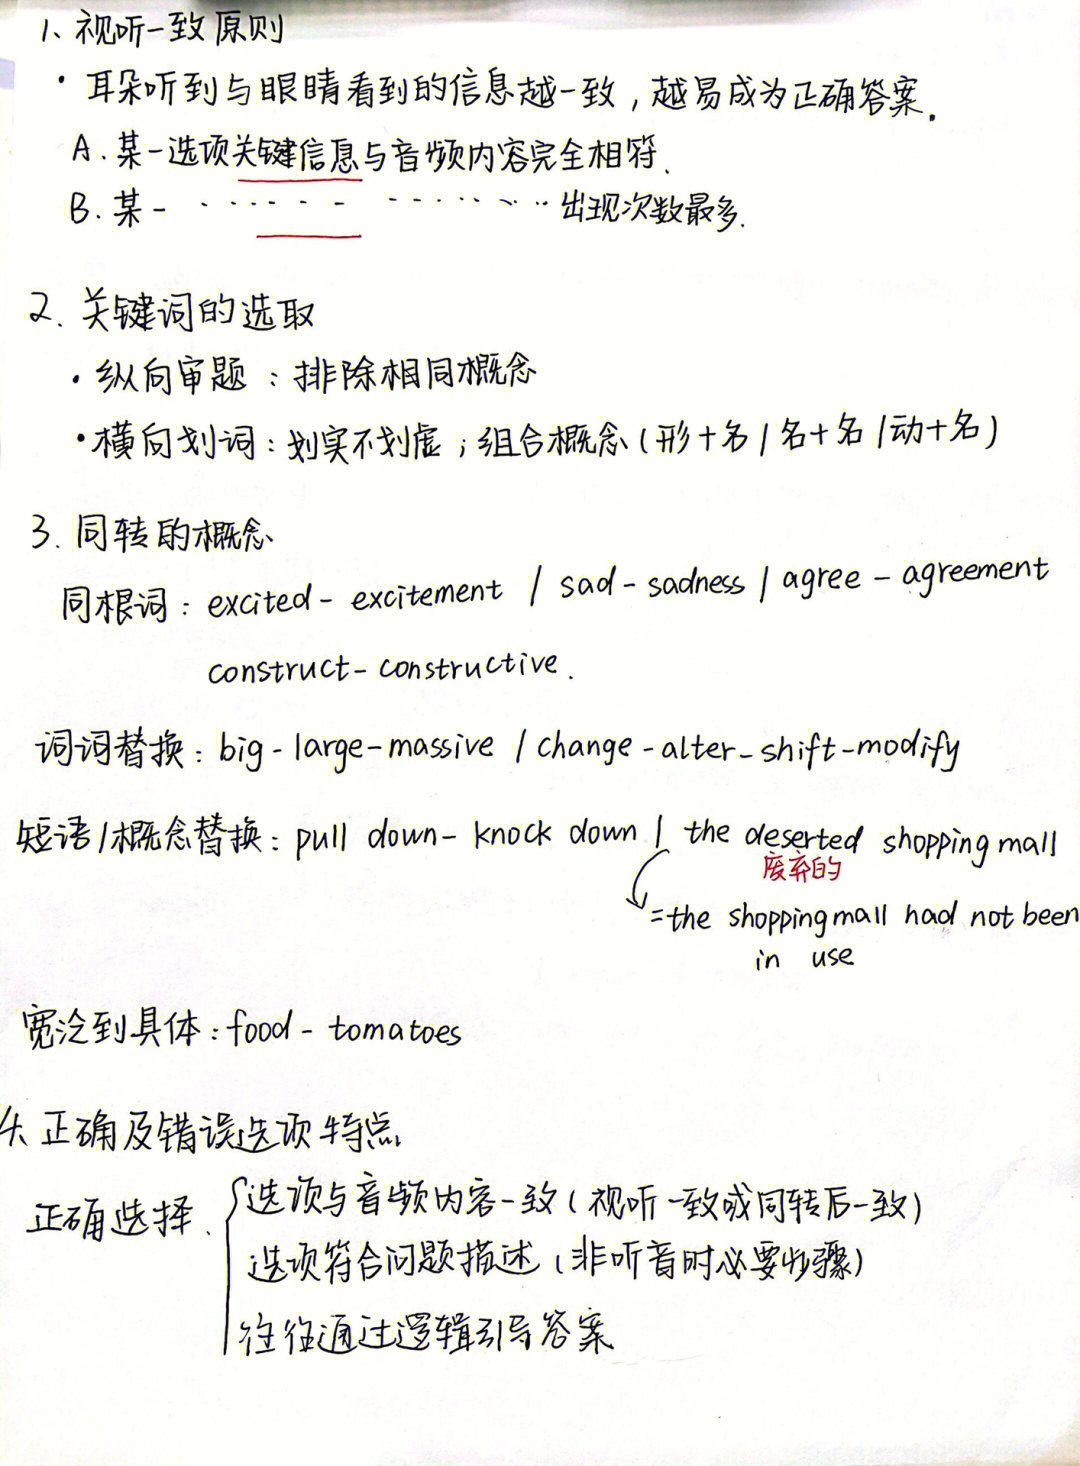 1、视听一致原则
· 耳朵听到与眼睛看到的信息越一致，越易成为正确答案.
A.某一选项关键信息与音频内容完全相符.
B.某一 ······ ········出现次数最多.
2.关键词的选取
·纵向审题：排除相同概念
·横向划词：划实不划虚；组合概念(形+名/名+名/动+名)
3.同转的概念
同根词：excited- excitement / sad- sadness / agree - agreement
construct- constructive.
词词替换：big - large-massive / change -alter-shift-modify
短语/概念替换：pull down- knock down / the deserted shopping mall
废弃的
=the shopping mall had not been
in use
宽泛到具体：food - tomatoes
4、正确及错误选项特点
正确选择.
选项与音频内容一致(视听一致或同转后一致)
选项符合问题描述(非听音时必要步骤)
往往通过逻辑引导答案